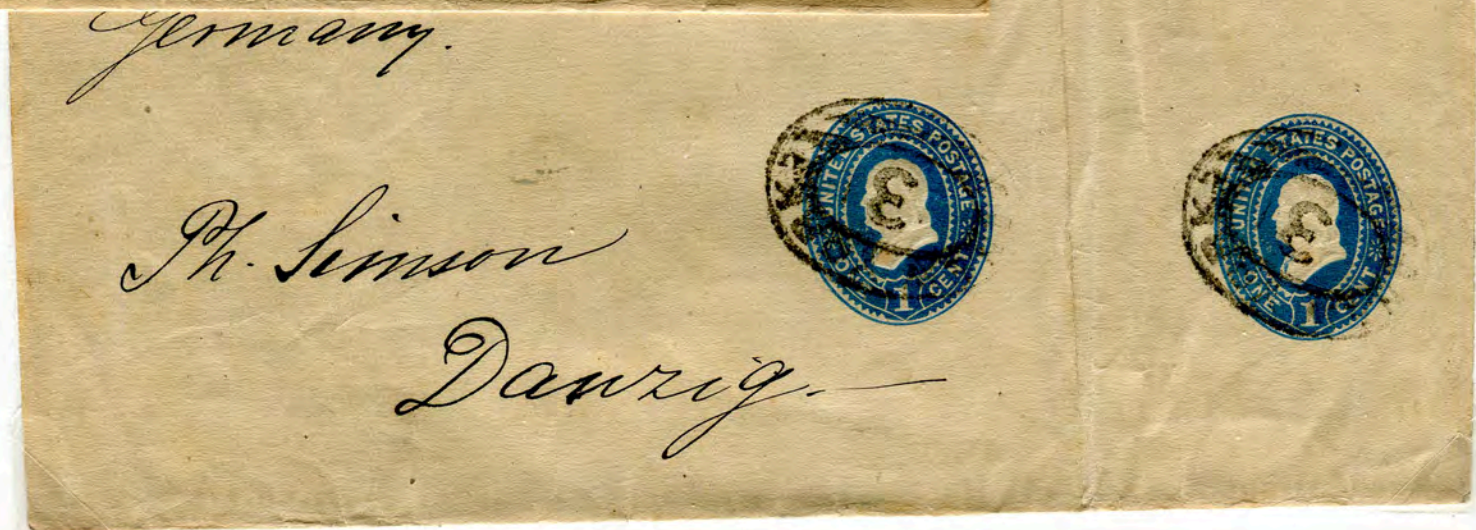 Germany.
Ph. Simson
Danzig.—
UNITED STATES POSTAGE
3
ONE 1 CENT
UNITED STATES POSTAGE
3
ONE 1 CENT